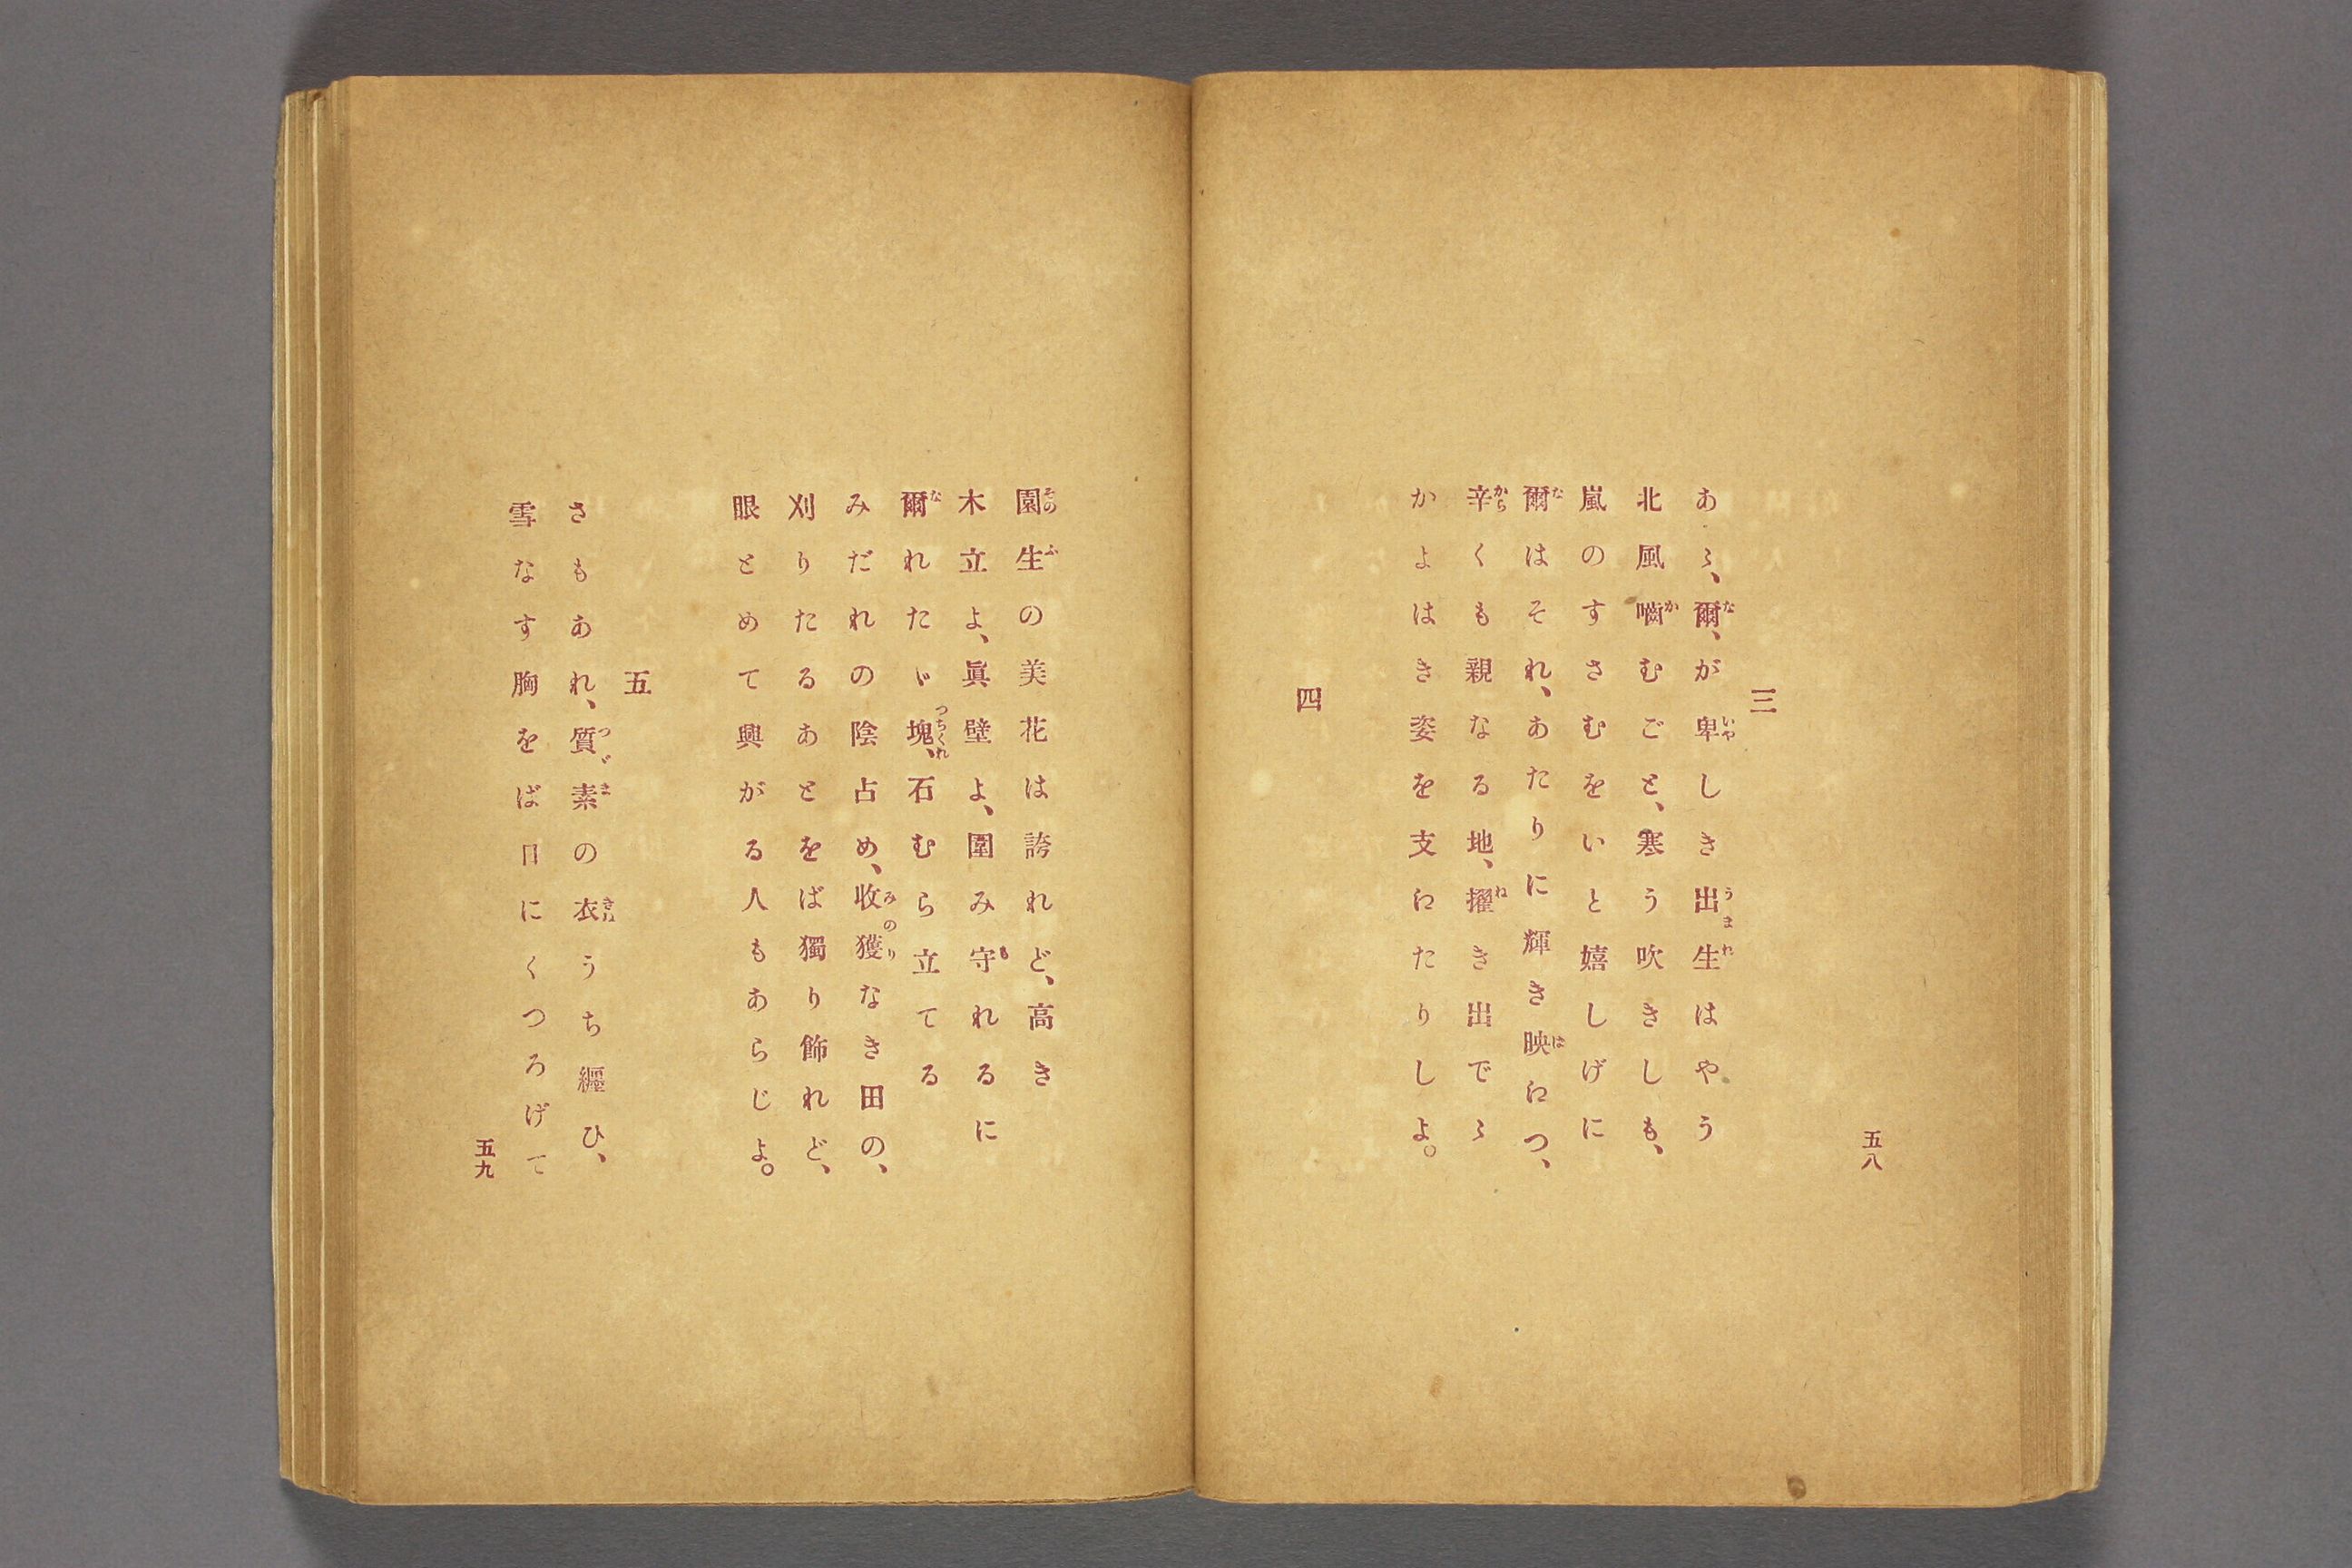 五八
三
あゝ、爾(な)、が卑(いや)しき出生(うまれ)はやう
北風嚙(か)むごと、寒う吹きしも、
嵐のすさむをいと嬉しげに
爾(な)はそれ、あたりに輝き映(は)えつ、
辛(から)くも親なる地、擢(ぬ)き出でゝ
かよはき姿を支えたりしよ。
四
園生(そのふ)の美花は誇れど、高き
木立よ、眞壁よ、圍み守(も)れるに
爾(な)れたゞ塊(つちくれ)、石むら立てる
みだれの陰占め、收獲(みのり)なき田の、
刈りたるあとをば獨り飾れど、
眼とめて興がる人もあらじよ。
五
さもあれ、質素(つゞま)の衣(きぬ)うち纒ひ、
雪なす胸をば日にくつろげて
五九